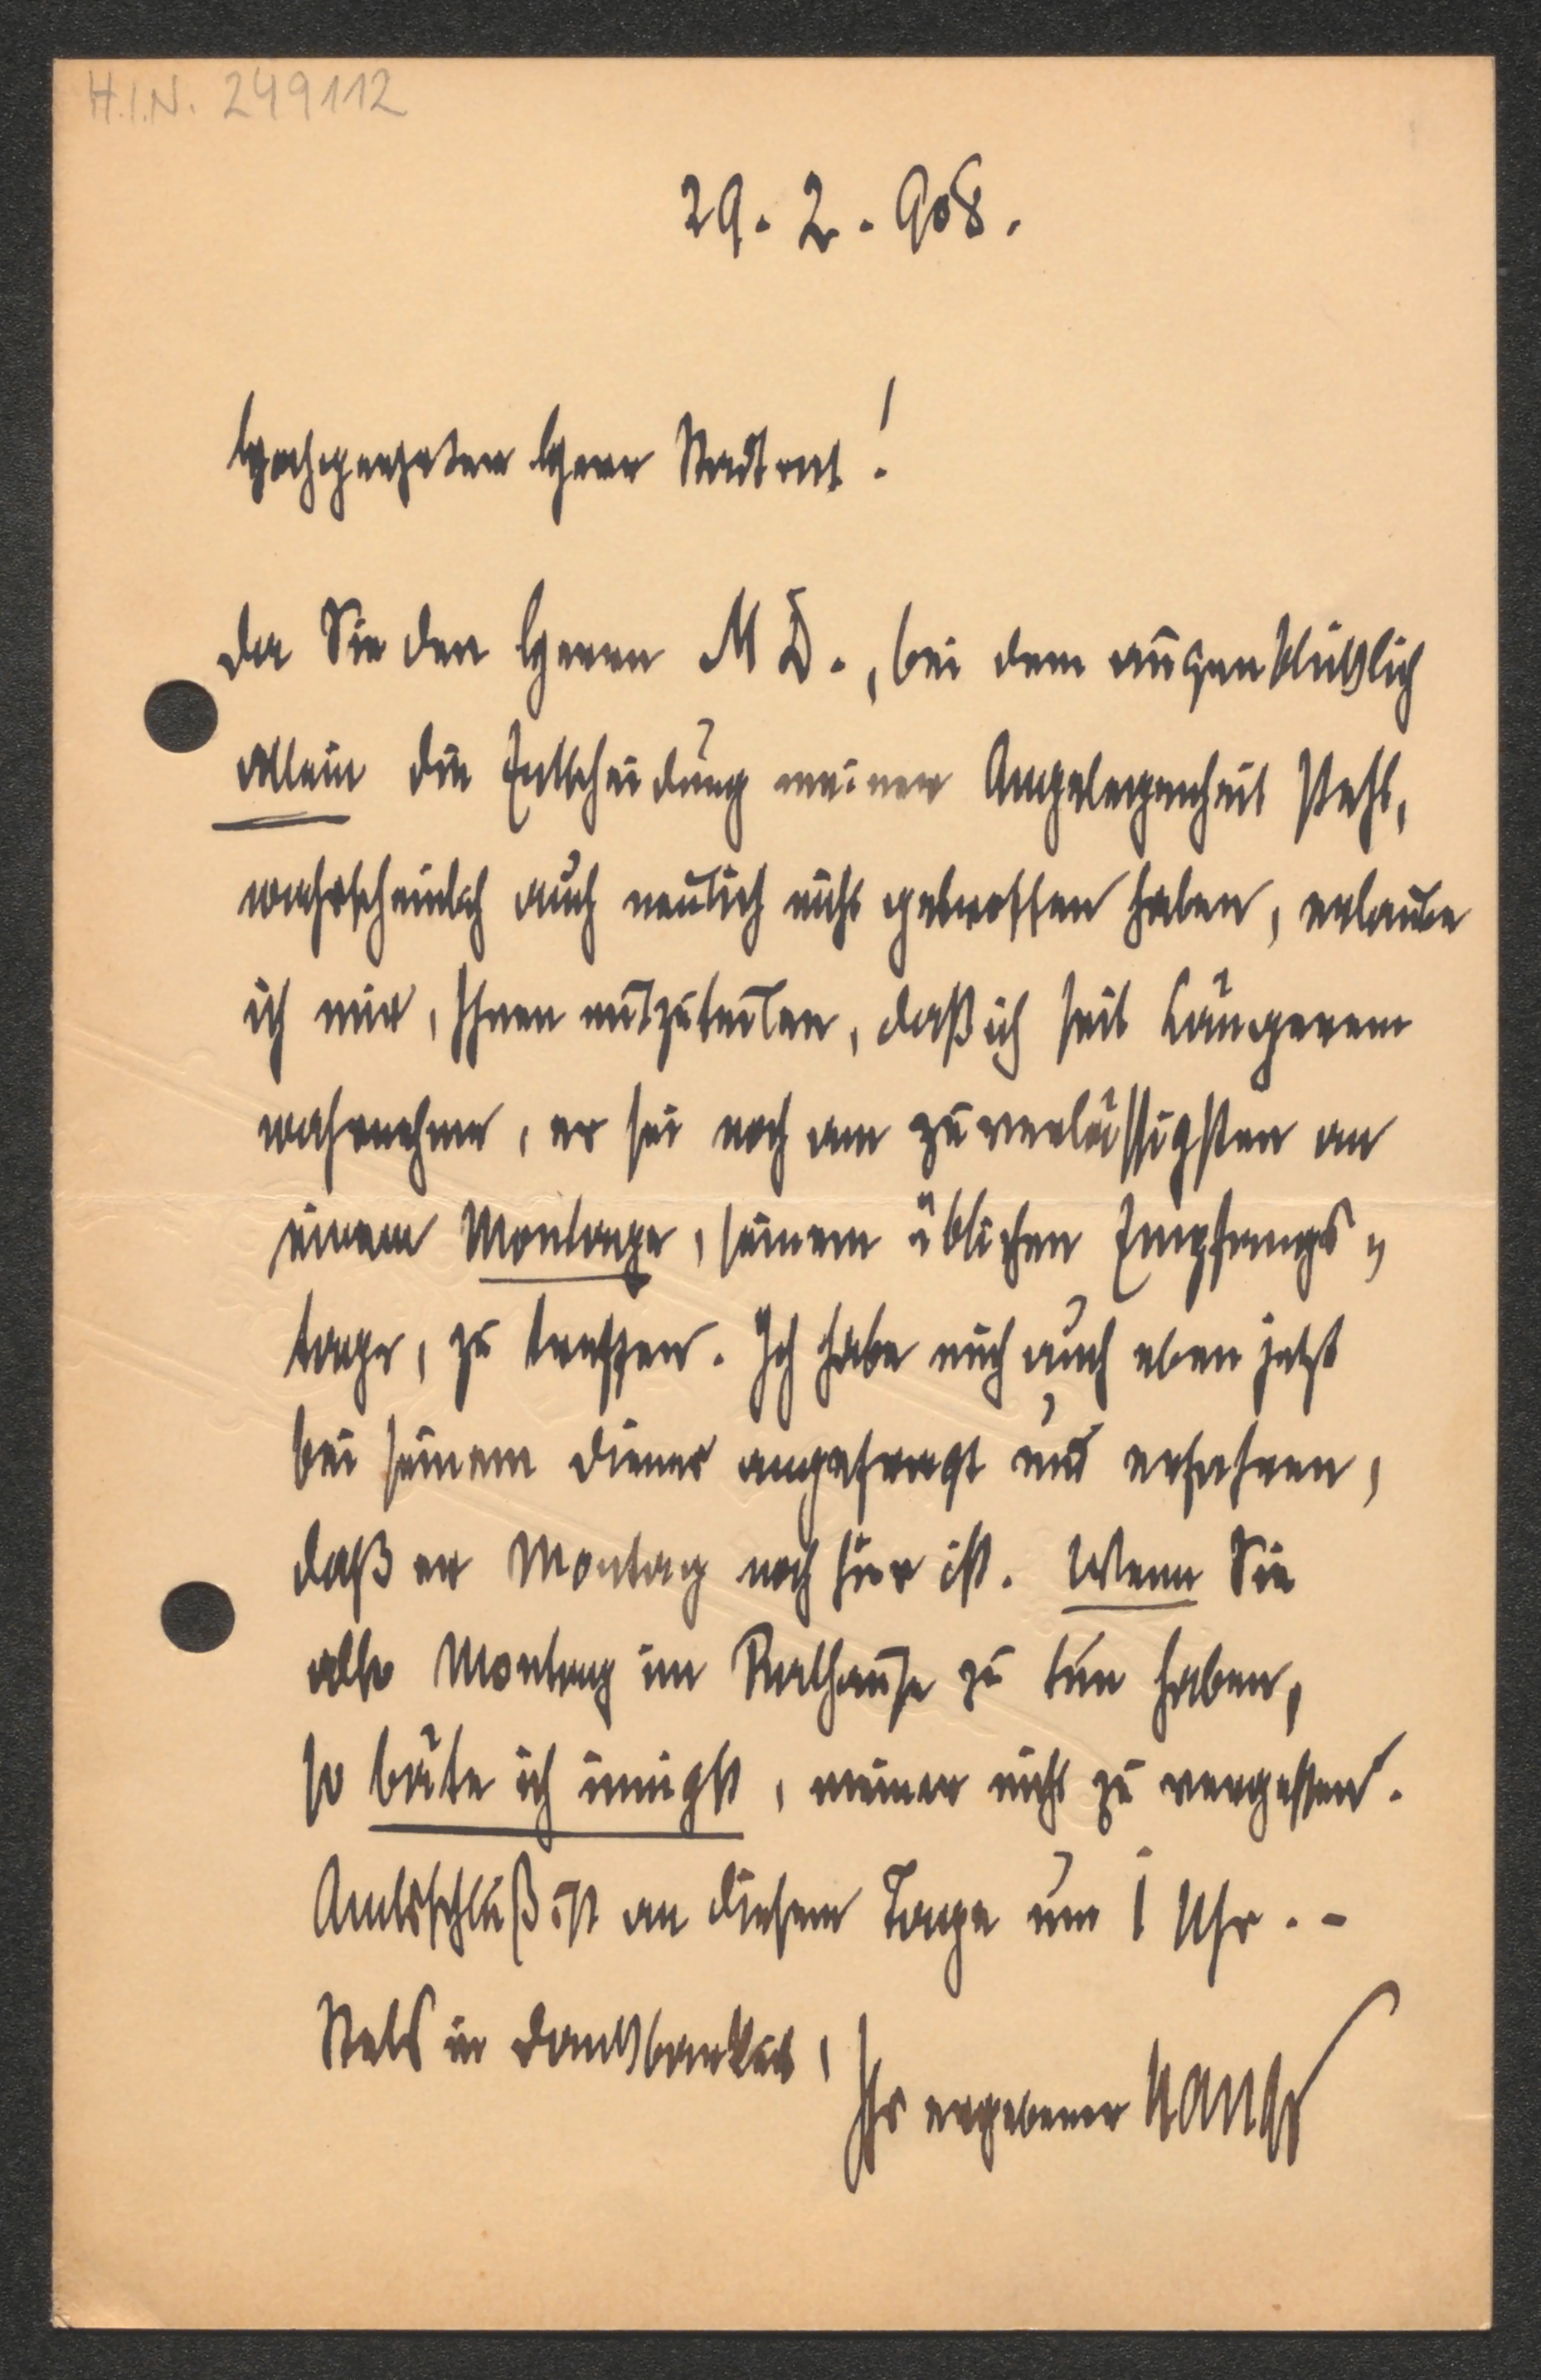 H.I.N. 249112
29. 2. 908.
Hochgeehrter Herr Stadtrat!
Da Sie den Herrn M D., bei dem augenblicklich
allein die Entscheidung meiner Angelegenheit steht,
wahrscheinlich auch neulich nicht getroffen haben, erlaube
ich mir, Ihnen mitzuteilen, daß ich seit Längerem
wahrnehme, er sei noch am zuverlässigsten an
einem Montage, seinem üblichen Empfangs-
tage, zu treffen. Ich habe mich auch eben jetzt
bei seinem Diener angefragt und erfahren,
daß er Montag noch hier ist. Wenn Sie
also Montag im Rathause zu tun haben,
so bäte ich innigst, meiner nicht zu vergessen.
Amtsschluß ist an diesem Tage um 1 Uhr. -
Stets in Dankbarkeit,
Ihr ergebener